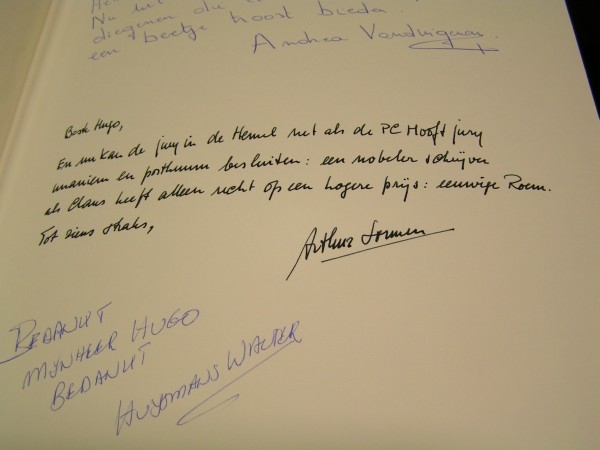 Nu
diegenen die
een beetje troost bieden.
Andrea
Beste Hugo,
En nu kan de jury in de Hemel net als de PC Hooft jury
unaniem en posthuum besluiten: een nobeler schrijver
als Claus heeft alleen recht op een hogere prijs: eeuwige Roem.
Tot ziens straks,
Arthur
BEDANKT
MYNHEER HUGO
BEDANKT
HUYSMANS WALTER